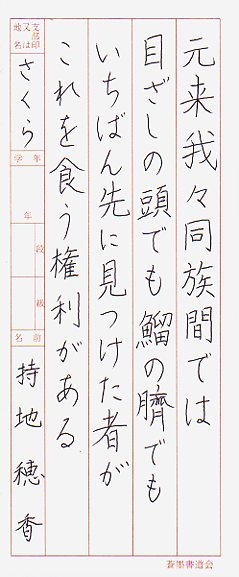 元来我々同族間では
目ざしの頭でも鰡の臍でも
いちばん先に見つけた者が
これを食う権利がある
支部印又は地名
さくら
学年
年
段
級
名前
持地穂香
蒼墨書道会